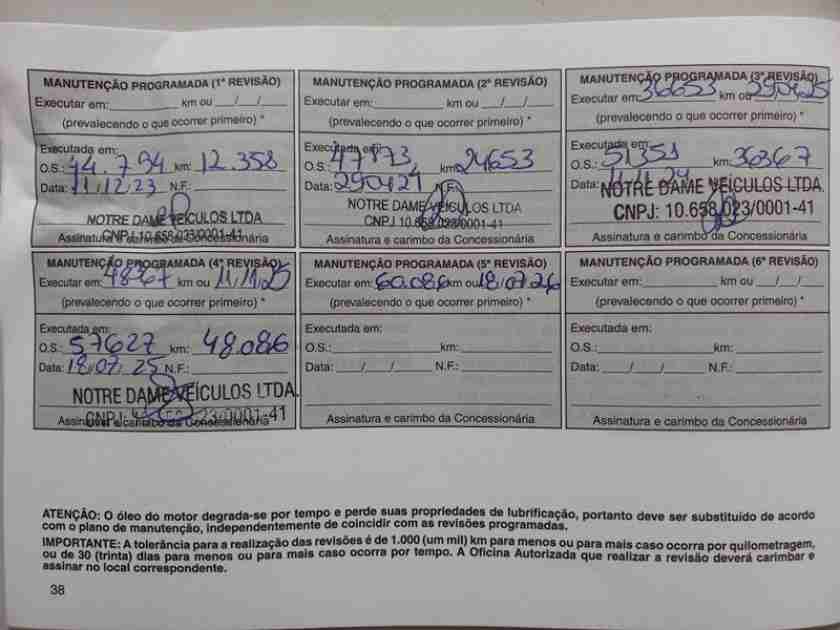 MANUTENÇÃO PROGRAMADA (1ª REVISÃO)
Executar em:__________ km ou ___/___/___
(prevalecendo o que ocorrer primeiro) *
Executada em:
O.S.: 44.794 km: 12.358
Data: 11/12/23 N.F.:
NOTRE DAME VEÍCULOS LTDA
CNPJ 10.658.023/0001-41
Assinatura e carimbo da Concessionária
MANUTENÇÃO PROGRAMADA (2ª REVISÃO)
Executar em:__________ km ou ___/___/___
(prevalecendo o que ocorrer primeiro) *
Executada em:
O.S.: 47873 km: 24653
Data: N.F.:
NOTRE DAME VEÍCULOS LTDA
CNPJ 10.658.023/0001-41
Assinatura e carimbo da Concessionária
MANUTENÇÃO PROGRAMADA (3ª REVISÃO)
Executar em: 36653 km ou 29/04/25
(prevalecendo o que ocorrer primeiro) *
Executada em:
O.S.: 51351 km: 36367
Data: 11/11/24
NOTRE DAME VEÍCULOS LTDA.
CNPJ: 10.658.023/0001-41
Assinatura e carimbo da Concessionária
MANUTENÇÃO PROGRAMADA (4ª REVISÃO)
Executar em: 48367 km ou 11/11/25
(prevalecendo o que ocorrer primeiro) *
Executada em:
O.S.: 57627 km: 48.086
Data: 18/07/25 N.F.:
NOTRE DAME VEÍCULOS LTDA.
CNPJ: 23/0001-41
Assinatura e carimbo da Concessionária
MANUTENÇÃO PROGRAMADA (5ª REVISÃO)
Executar em: 60.086 km ou 18/07/26
(prevalecendo o que ocorrer primeiro) *
Executada em:
O.S.:__________ km:__________
Data: ___/___/___ N.F.:__________
Assinatura e carimbo da Concessionária
MANUTENÇÃO PROGRAMADA (6ª REVISÃO)
Executar em:__________ km ou ___/___/___
(prevalecendo o que ocorrer primeiro) *
Executada em:
O.S.:__________ km:__________
Data: ___/___/___ N.F.:__________
Assinatura e carimbo da Concessionária
ATENÇÃO: O óleo do motor degrada-se por tempo e perde suas propriedades de lubrificação, portanto deve ser substituído de acordo
com o plano de manutenção, independentemente de coincidir com as revisões programadas.
IMPORTANTE: A tolerância para a realização das revisões é de 1.000 (um mil) km para menos ou para mais caso ocorra por quilometragem,
ou de 30 (trinta) dias para menos ou para mais caso ocorra por tempo. A Oficina Autorizada que realizar a revisão deverá carimbar e
assinar no local correspondente.
38